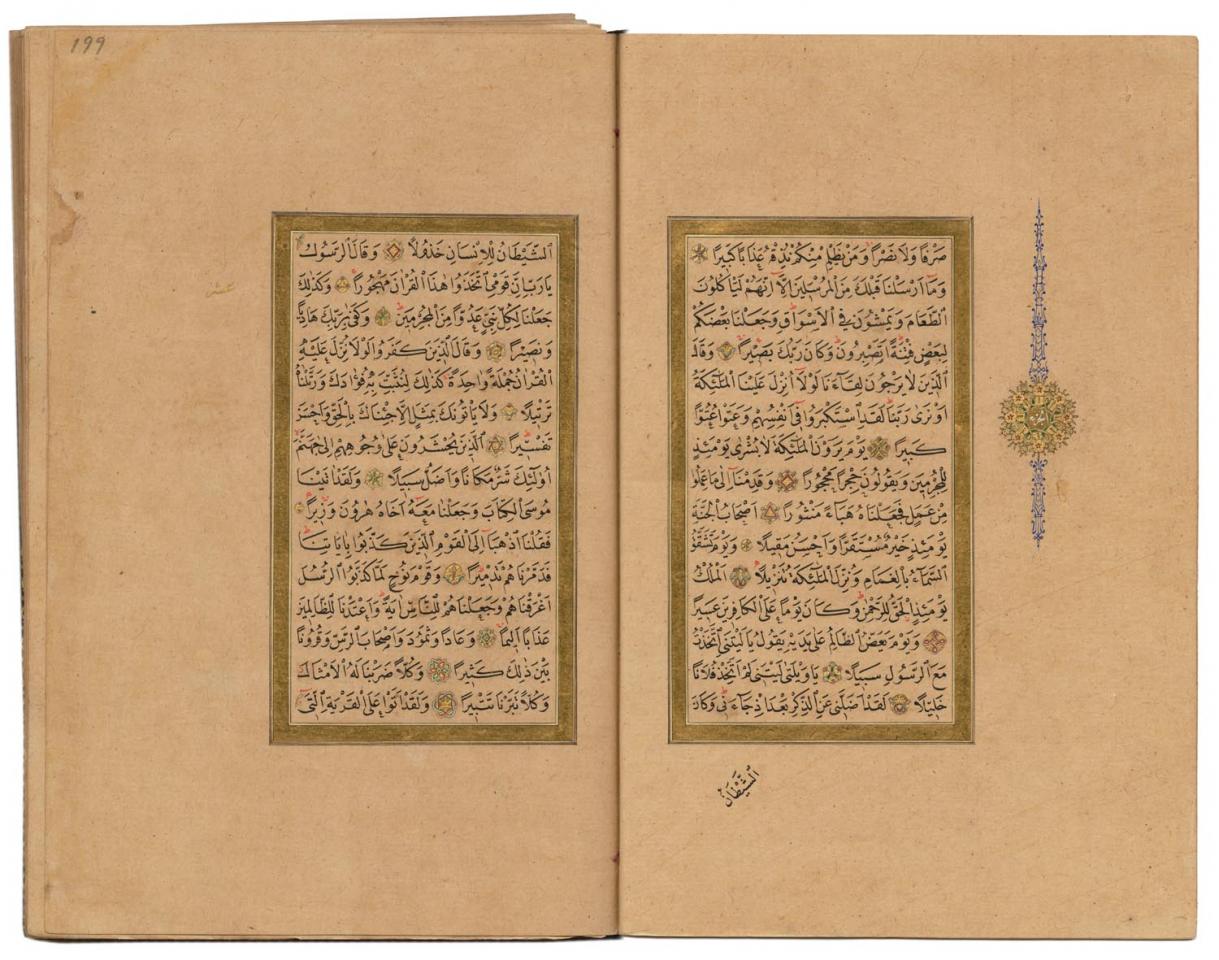 صَرْفًا وَلَا نَصْرًا وَمَنْ يَظْلِمْ مِنْكُمْ نُذِقْهُ عَذَابًا كَبِيرًا
وَمَا أَرْسَلْنَا قَبْلَكَ مِنَ الْمُرْسَلِينَ إِلَّا إِنَّهُمْ لَيَأْكُلُونَ
الطَّعَامَ وَيَمْشُونَ فِي الْأَسْوَاقِ وَجَعَلْنَا بَعْضَكُمْ
لِبَعْضٍ فِتْنَةً أَتَصْبِرُونَ وَكَانَ رَبُّكَ بَصِيرًا وَقَالَ
الَّذِينَ لَا يَرْجُونَ لِقَاءَنَا لَوْلَا أُنْزِلَ عَلَيْنَا الْمَلٰئِكَةُ
أَوْ نَرٰى رَبَّنَا لَقَدِ اسْتَكْبَرُوا فِي أَنْفُسِهِمْ وَعَتَوْا عُتُوًّا
كَبِيرًا يَوْمَ يَرَوْنَ الْمَلٰئِكَةَ لَا بُشْرٰى يَوْمَئِذٍ
لِلْمُجْرِمِينَ وَيَقُولُونَ حِجْرًا مَحْجُورًا وَقَدِمْنَا إِلٰى مَا عَمِلُوا
مِنْ عَمَلٍ فَجَعَلْنَاهُ هَبَاءً مَنْثُورًا أَصْحَابُ الْجَنَّةِ
يَوْمَئِذٍ خَيْرٌ مُسْتَقَرًّا وَأَحْسَنُ مَقِيلًا وَيَوْمَ تَشَقَّقُ
السَّمَاءُ بِالْغَمَامِ وَنُزِّلَ الْمَلٰئِكَةُ تَنْزِيلًا الْمُلْكُ
يَوْمَئِذٍ الْحَقُّ لِلرَّحْمٰنِ وَكَانَ يَوْمًا عَلَى الْكَافِرِينَ عَسِيرًا
وَيَوْمَ يَعَضُّ الظَّالِمُ عَلٰى يَدَيْهِ يَقُولُ يَا لَيْتَنِي اتَّخَذْتُ
مَعَ الرَّسُولِ سَبِيلًا يَا وَيْلَتٰى لَيْتَنِي لَمْ أَتَّخِذْ فُلَانًا
خَلِيلًا لَقَدْ أَضَلَّنِي عَنِ الذِّكْرِ بَعْدَ إِذْ جَاءَنِي وَكَانَ
الشَّيْطَانُ
199
الشَّيْطَانُ لِلْإِنْسَانِ خَذُولًا وَقَالَ الرَّسُولُ
يَا رَبِّ إِنَّ قَوْمِي اتَّخَذُوا هٰذَا الْقُرْاٰنَ مَهْجُورًا وَكَذٰلِكَ
جَعَلْنَا لِكُلِّ نَبِيٍّ عَدُوًّا مِنَ الْمُجْرِمِينَ وَكَفٰى بِرَبِّكَ هَادِيًا
وَنَصِيرًا وَقَالَ الَّذِينَ كَفَرُوا لَوْلَا نُزِّلَ عَلَيْهِ
الْقُرْاٰنُ جُمْلَةً وَاحِدَةً كَذٰلِكَ لِنُثَبِّتَ بِهِ فُؤَادَكَ وَرَتَّلْنَاهُ
تَرْتِيلًا وَلَا يَأْتُونَكَ بِمَثَلٍ إِلَّا جِئْنَاكَ بِالْحَقِّ وَأَحْسَنَ
تَفْسِيرًا الَّذِينَ يُحْشَرُونَ عَلٰى وُجُوهِهِمْ إِلٰى جَهَنَّمَ
أُولٰئِكَ شَرٌّ مَكَانًا وَأَضَلُّ سَبِيلًا وَلَقَدْ اٰتَيْنَا
مُوسَى الْكِتَابَ وَجَعَلْنَا مَعَهُ أَخَاهُ هٰرُونَ وَزِيرًا
فَقُلْنَا اذْهَبَا إِلَى الْقَوْمِ الَّذِينَ كَذَّبُوا بِاٰيَاتِنَا
فَدَمَّرْنَاهُمْ تَدْمِيرًا وَقَوْمَ نُوحٍ لَمَّا كَذَّبُوا الرُّسُلَ
أَغْرَقْنَاهُمْ وَجَعَلْنَاهُمْ لِلنَّاسِ اٰيَةً وَأَعْتَدْنَا لِلظَّالِمِينَ
عَذَابًا أَلِيمًا وَعَادًا وَثَمُودَ وَأَصْحَابَ الرَّسِّ وَقُرُونًا
بَيْنَ ذٰلِكَ كَثِيرًا وَكُلًّا ضَرَبْنَا لَهُ الْأَمْثَالَ
وَكُلًّا تَبَّرْنَا تَتْبِيرًا وَلَقَدْ أَتَوْا عَلَى الْقَرْيَةِ الَّتِي